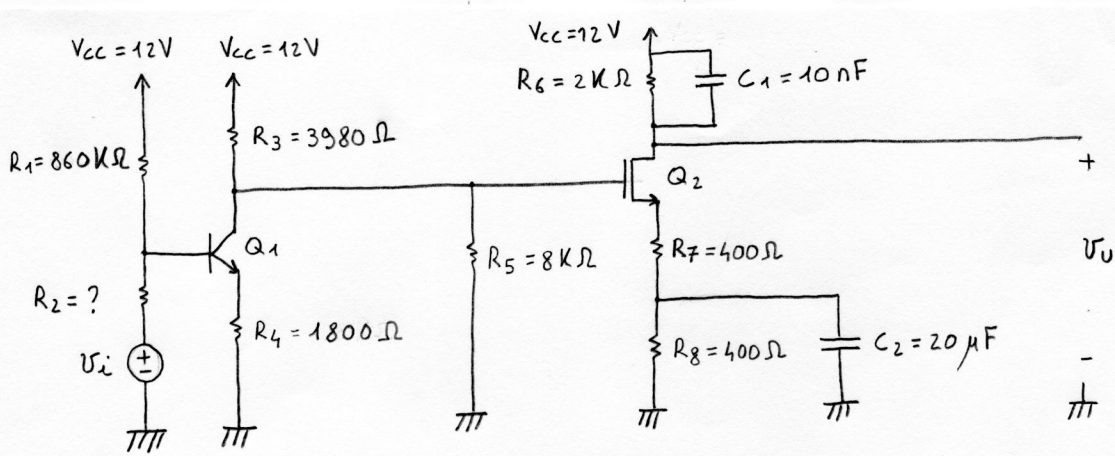 Vcc=12V
Vcc=12V
Vcc=12V
R6=2KΩ
C1=10nF
R3=3980Ω
R1=860KΩ
+
Q2
Q1
R5=8KΩ
R7=400Ω
vu
R2=?
R4=1800Ω
vi
+
-
R8=400Ω
C2=20μF
-